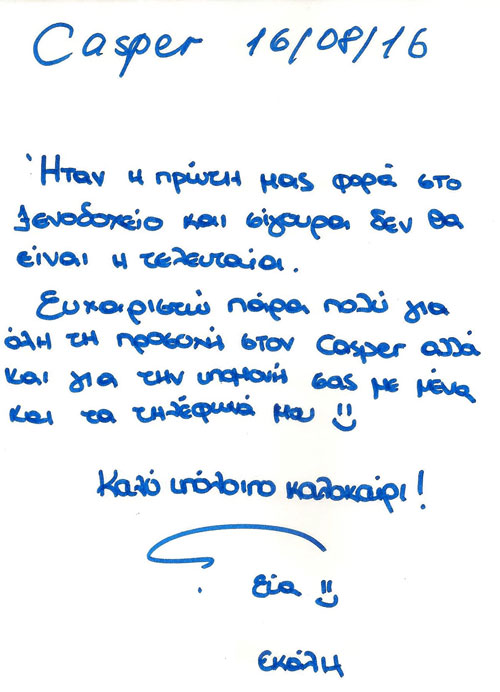 Casper 16/08/16
Ήταν η πρώτη μας φορά στο
ξενοδοχείο και σίγουρα δεν θα
είναι η τελευταία.
Ευχαριστώ πάρα πολύ για
όλη τη προσοχή στον Casper αλλά
και για την υπομονή σας με μένα
και τα τηλέφωνά μου
Καλό υπόλοιπο καλοκαίρι!
Εύα
Εκάλη